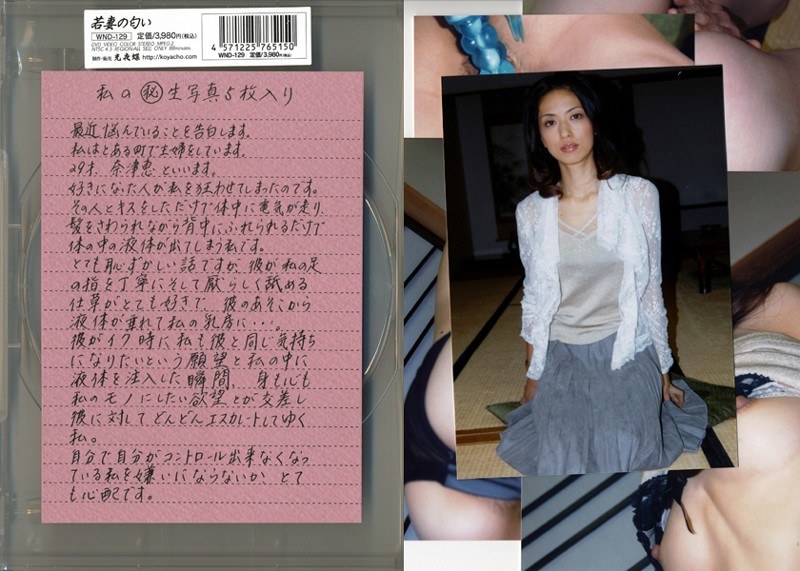 若妻の匂い
WND-129 定価/3,980円(税込)
DVD VIDEO COLOR STEREO MPEG-2
NTSC 4:3 REGION:ALL SEE ONLY 88minutes
制作・販売 光夜蝶 http://koyacho.com
4 571225 765150
WND-129 定価/3,980円(税込)
私の㊙生写真5枚入り
最近悩んでいることを告白します。
私はとある町で主婦をしています。
29才、奈津恵といいます。
好きになった人が私を狂わせてしまったのです。
その人とキスをしただけで体中に電気が走り、
髪をさわられながら背中にふれられるだけで
体の中の液体が出てしまう私です。
とても恥ずかしい話ですが、彼が私の足
の指を丁寧にそして厭らしく舐める
仕草がとても好きで、彼のあそこから
液体が垂れて私の乳房に・・・。
彼がイク時に私も彼と同じ気持ち
になりたいという願望と私の中に
液体を注入した瞬間、身も心も
私のモノにしたい欲望とが交差し
彼に対してどんどんエスカレートしてゆく
私。
自分で自分がコントロール出来なくなっ
ている私を嫌いにならないか、とて
も心配です。